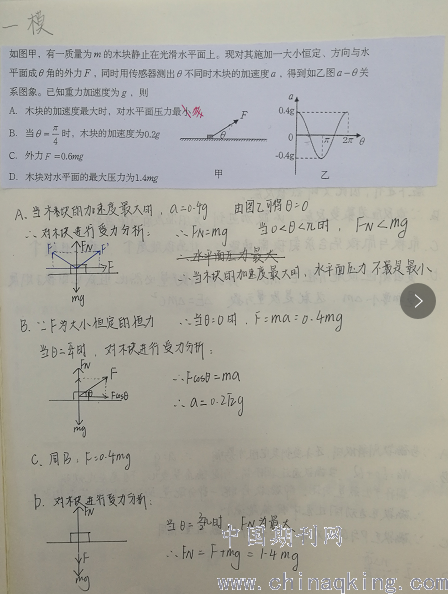 一模
如图甲，有一质量为m的木块静止在光滑水平面上。现对其施加一大小恒定、方向与水
平面成θ角的外力F，同时用传感器测出θ不同时木块的加速度a，得到如乙图a-θ关
系图象。已知重力加速度为g，则
A. 木块的加速度最大时，对水平面压力最
B. 当θ=π/4时，木块的加速度为0.2g
C. 外力F=0.6mg
D. 木块对水平面的最大压力为1.4mg
F
θ
甲
a
0.4g
0
-0.4g
π
2π
θ
乙
A. 当木块的加速度最大时，a=0.4g 由图乙可得θ=0
∴对木块进行受力分析： ∴FN=mg 当0<θ<π时，FN<mg
水平面压力最大
∴当木块的加速度最大时，水平面压力不是最小
F' FN F' F
mg
B. ∵F为大小恒定的恒力 ∴当θ=0时，F=ma=0.4mg
当θ=π/4时，对木块进行受力分析：
FN F
θ Fcosθ
mg
∴Fcosθ=ma
∴a=0.2√2g
C. 同B，F=0.4mg
D. 对木块进行受力分析：
FN
F
mg
当θ=3/2π时，FN为最大
∴FN=F+mg=1.4mg
中国期刊网
www.chinaqking.com